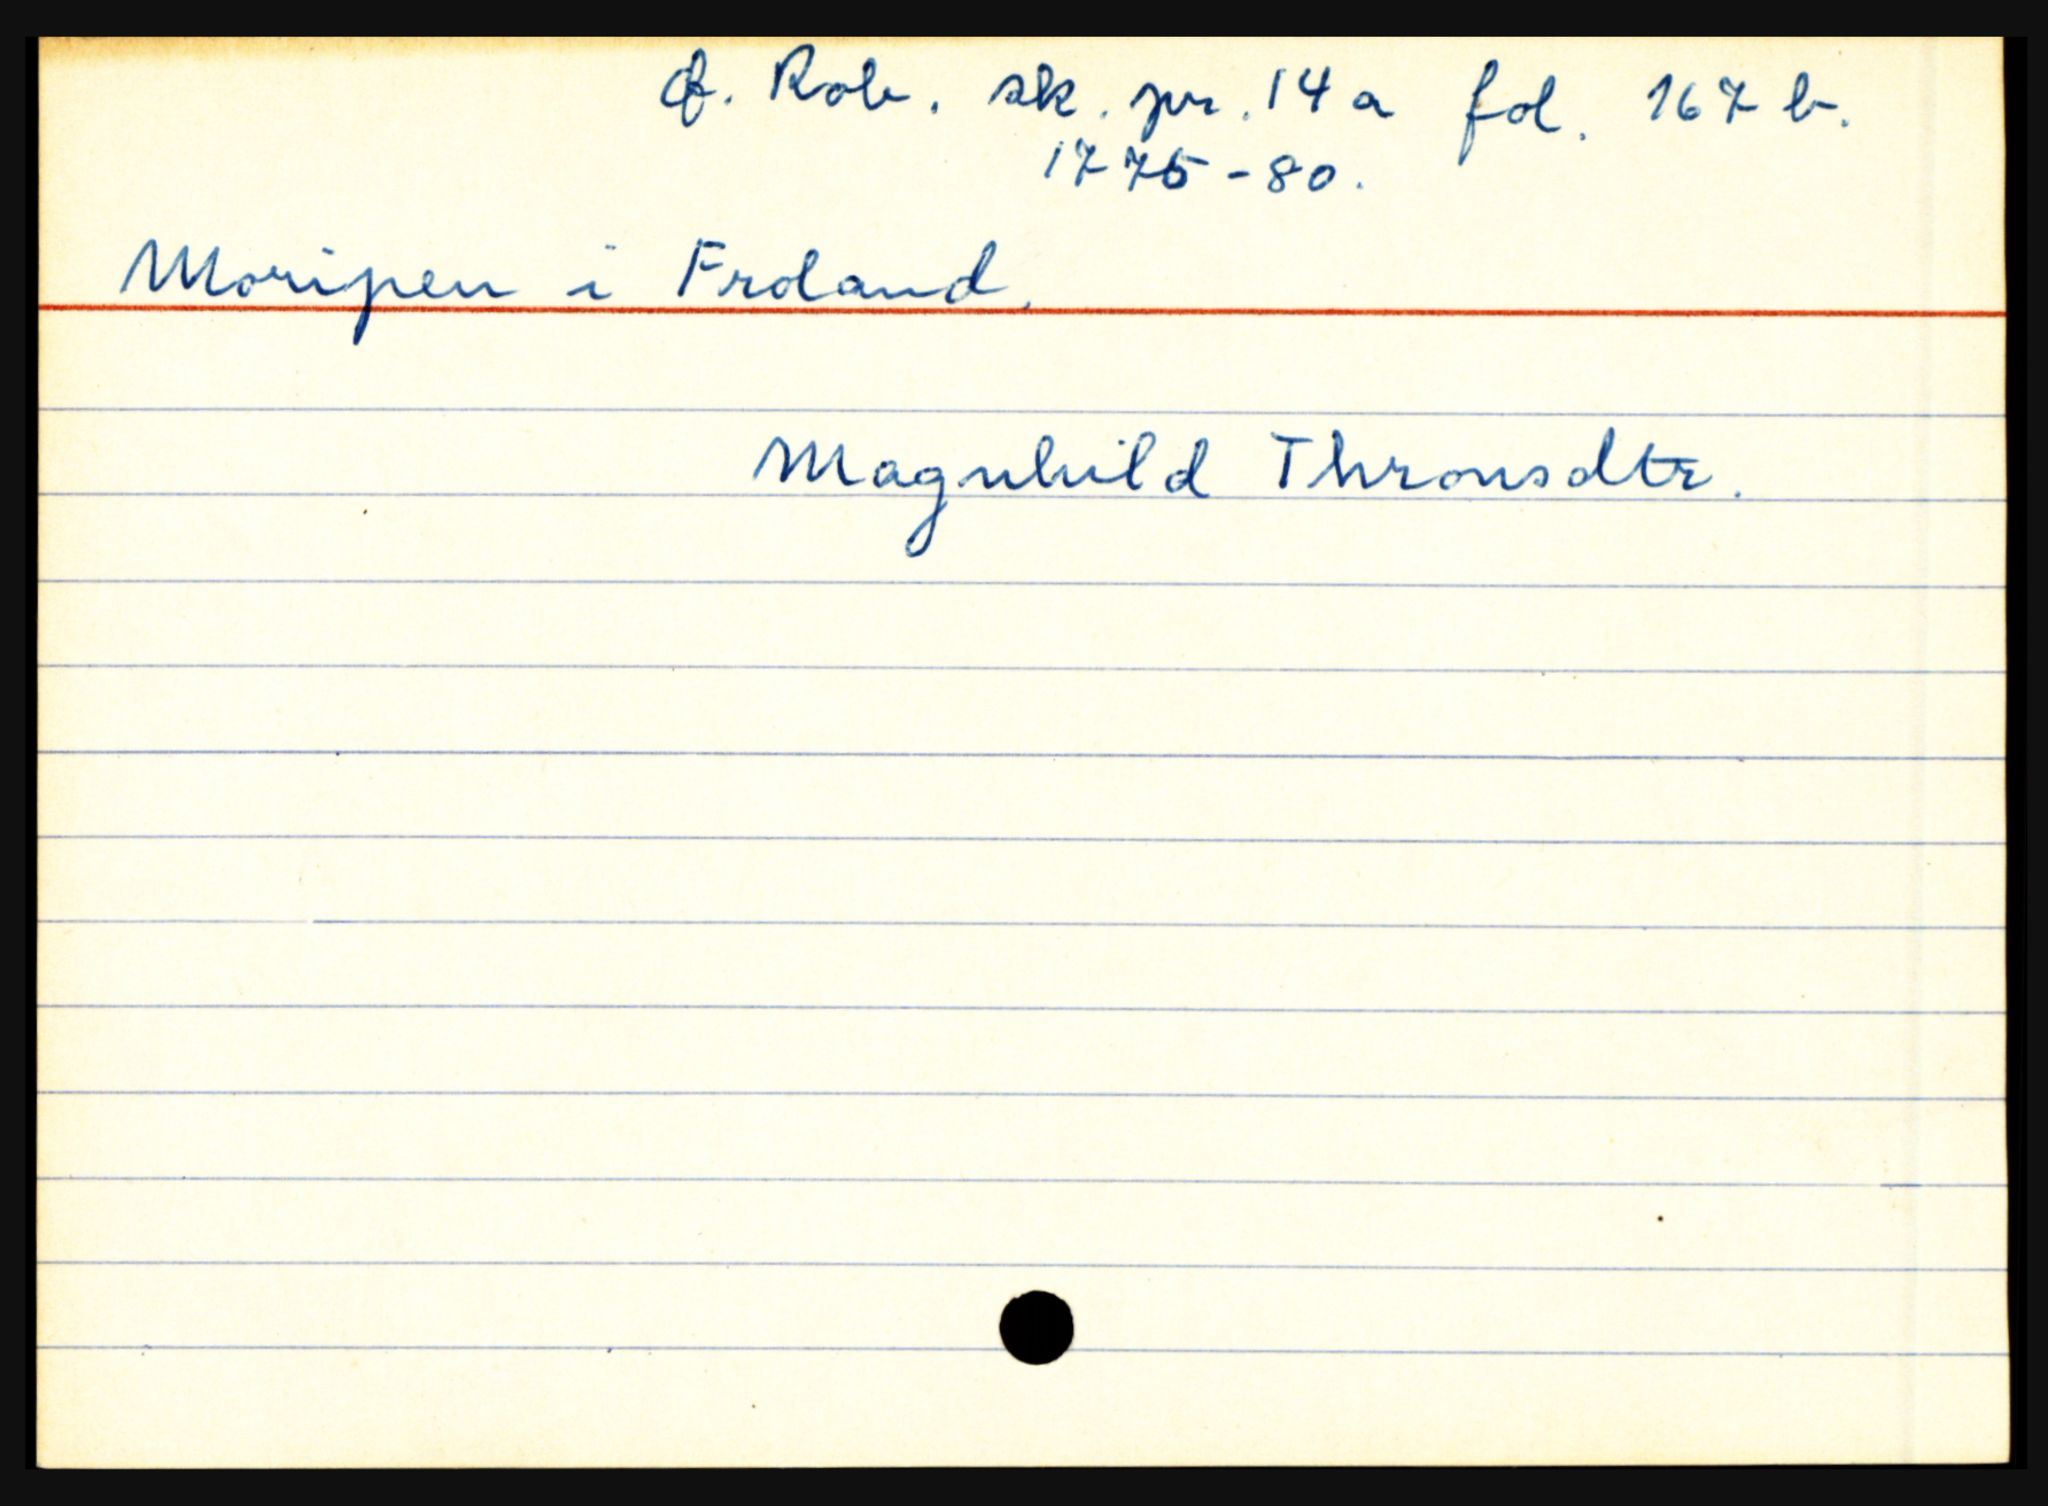 Ø. Rob. sk. pr. 14 a fol. 167 b.
1775-80.
Moripen i Froland.
Magnhild Thronsdtr.